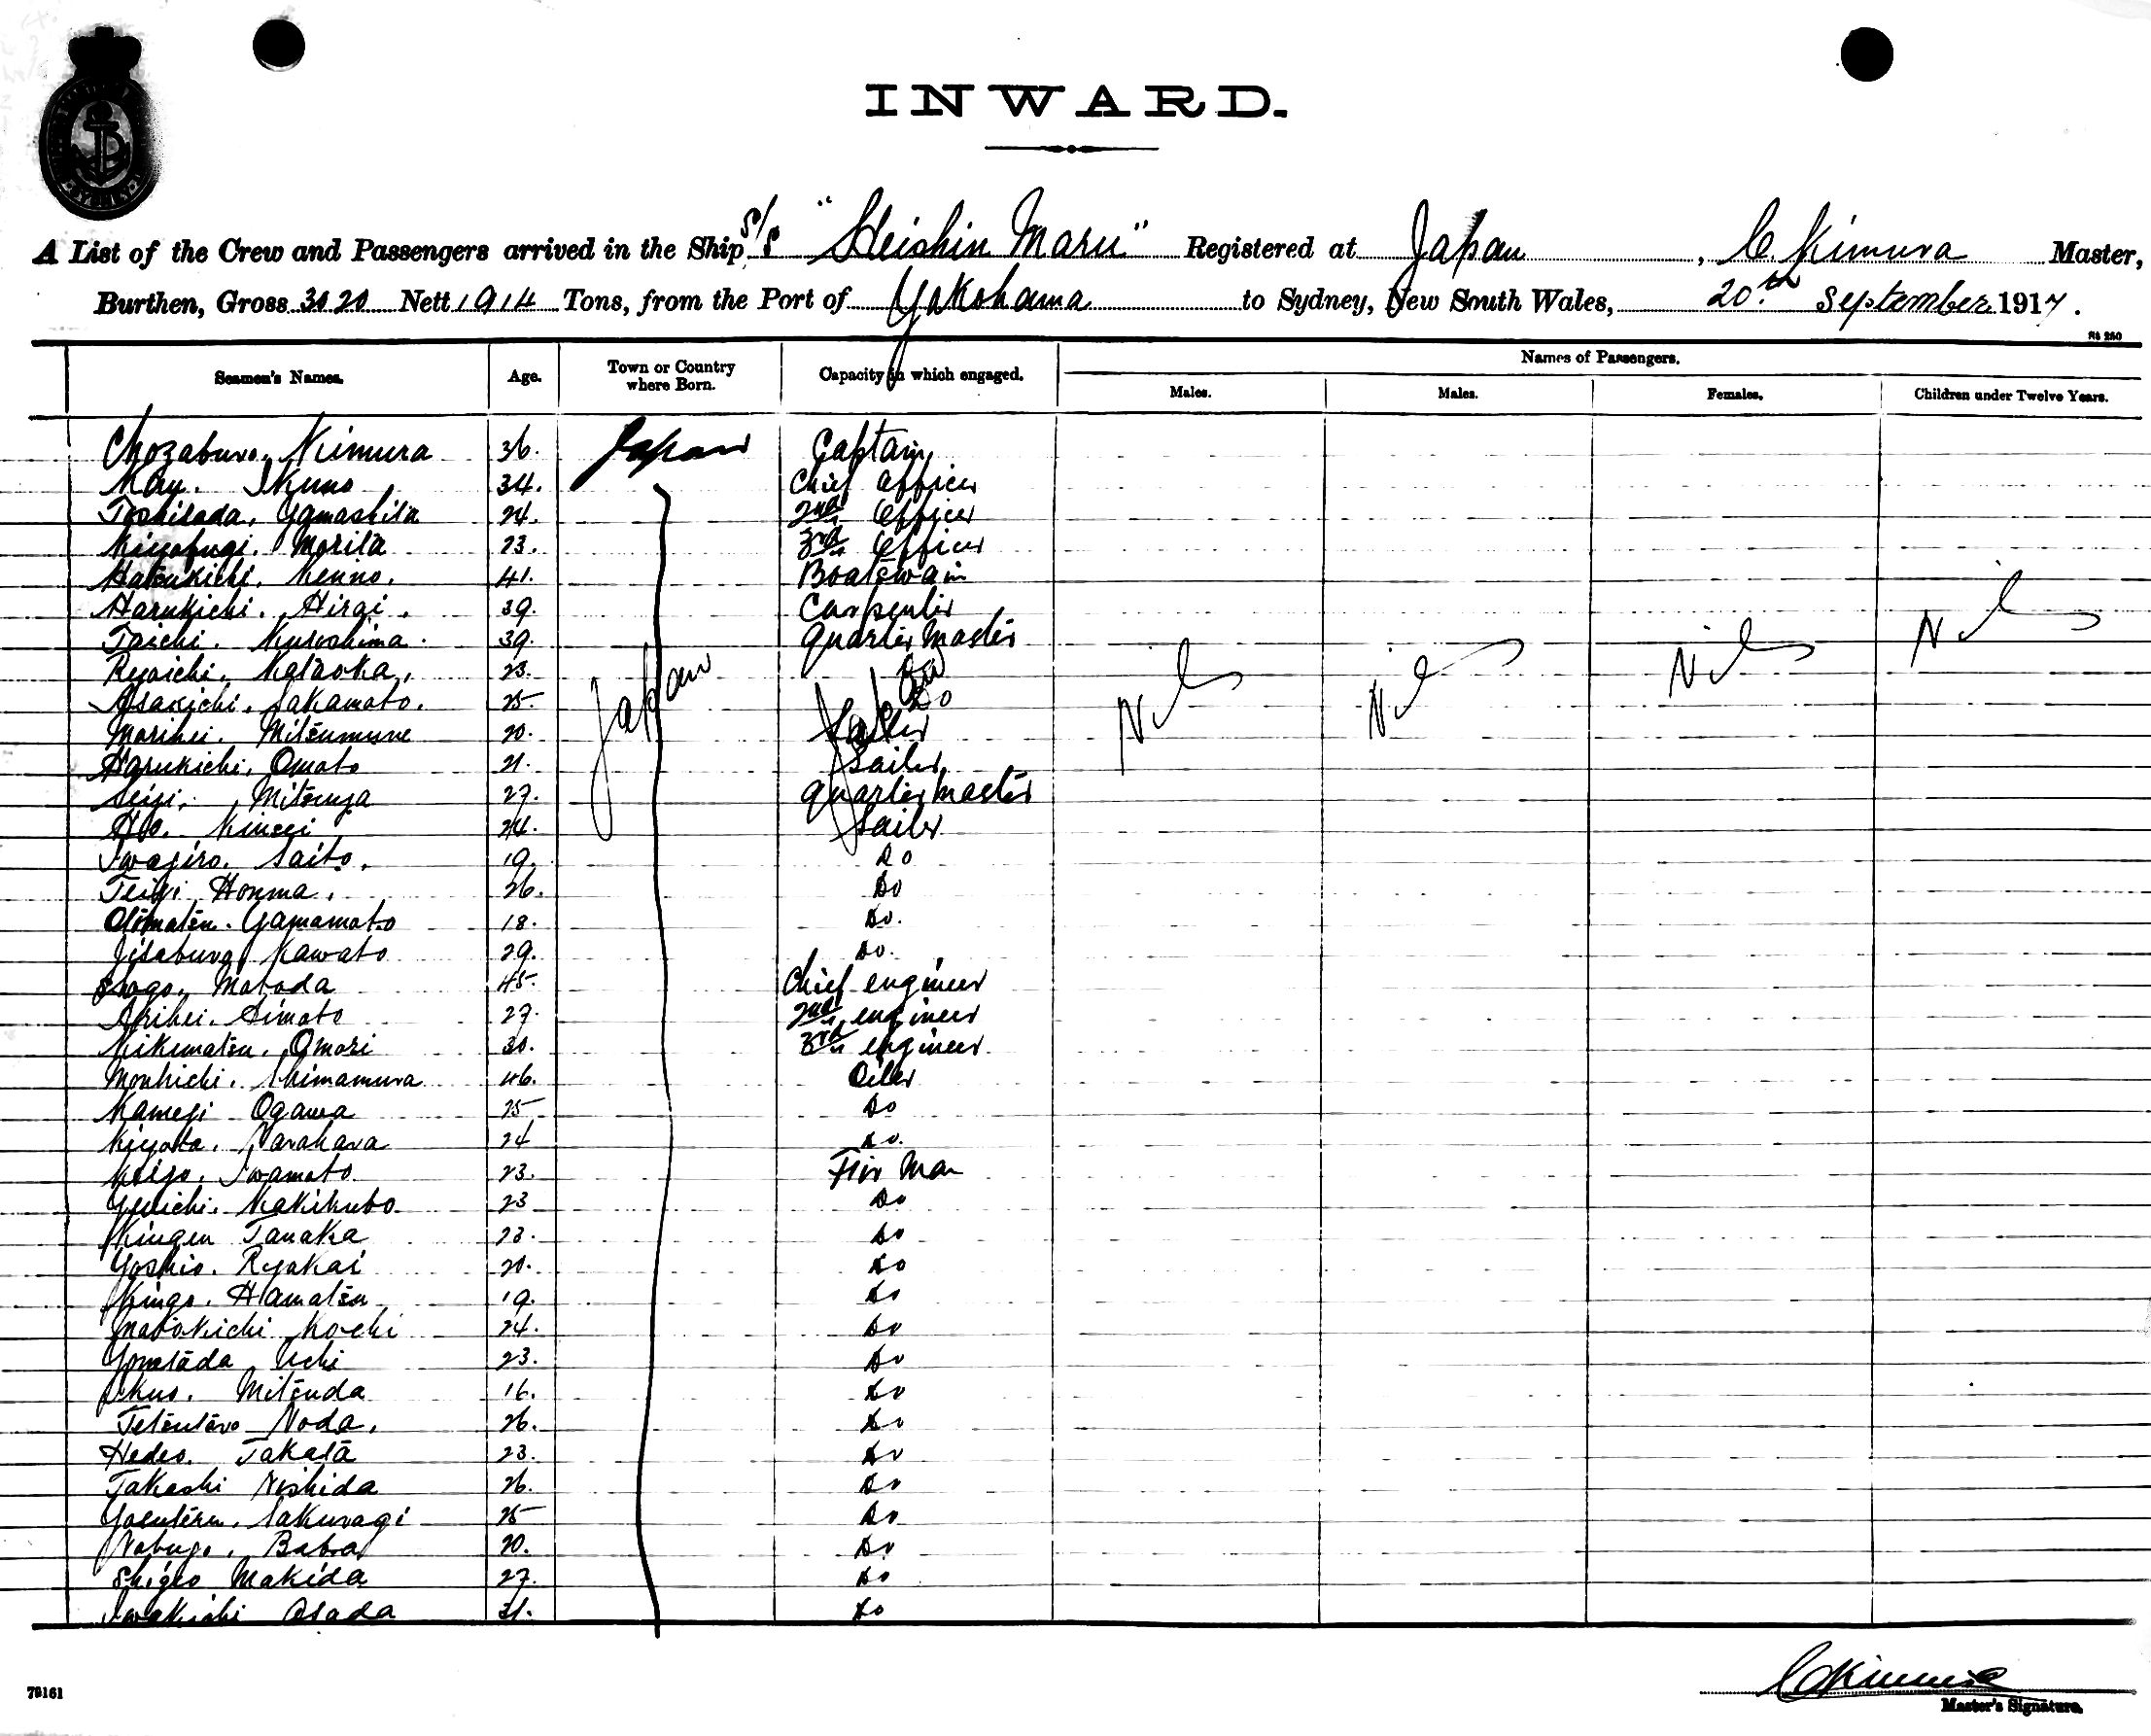 INWARD.
A List of the Crew and Passengers arrived in the Ship S/S "Heishin Maru" Registered at Japan, C. Kimura Master,
Burthen, Gross 3020 Nett 1914 Tons, from the Port of Yokohama to Sydney, New South Wales, 20th September 1917.
St 250
Names of Passengers.
Seamen's Names. Age. Town or Country where Born. Capacity in which engaged. Males. Males. Females. Children under Twelve Years.
Chozaburo. Kimura 36. Japan Captain
May. Ikuno 34. Chief Officer
Toshisada. Yamashita 24. 2nd Officer
Morita 23. 3rd Officer
Hatsukichi. Kenno. 41. Boatswain
Harukichi. Hirai. 39. Carpenter
Taichi. Kuroshima. 39. Quarter Master
Ryoichi. Kataoka. 23. Do
Asakichi. Sakamoto. 25. Do
Morihei. Mitsumune 20. Sailor
Harukichi. Omoto 21. Sailor
Seiji. Mitsuya 27. Quarter Master
24. Sailor
Iwajiro. Saito. 19. Do
Teiji Honma. 26. Do
Otomatsu. Yamamoto 18. Do.
Jisaburo Kawato 29. Do.
Japan
Nil Nil Nil Nil
Shogo. Motoda 45. Chief engineer
Arihei. Simoto 27. 2nd engineer
Kikumatsu. Omori 30. 3rd engineer
Monkichi. Shimamura 46. Oiler
Kameji Ogawa 25 Do
Kiyota. Narahara 24 Do.
Keigo. Iwamoto 23. Fire Man
Yuichi. Kakikubo 23 Do
Kingen Tanaka 23. Do
Yoshio. Ryokai 20. Do
Kingo. Hamatsu 19. Do
Motokichi Kochi 24. Do
Yonetada Uchi 23. Do
Ikuo. Mitsuda 16. Do
Tetsutaro Noda. 26. Do
Hedeo. Takata 23. Do
Takashi Nishida 26. Do
Yasuteru. Sakuragi 25 Do
Nobugo. Baba 20. Do
Shigeo Makida 27. Do
Iwakichi Asada 31. Do
C Kimura
Master's Signature.
79161